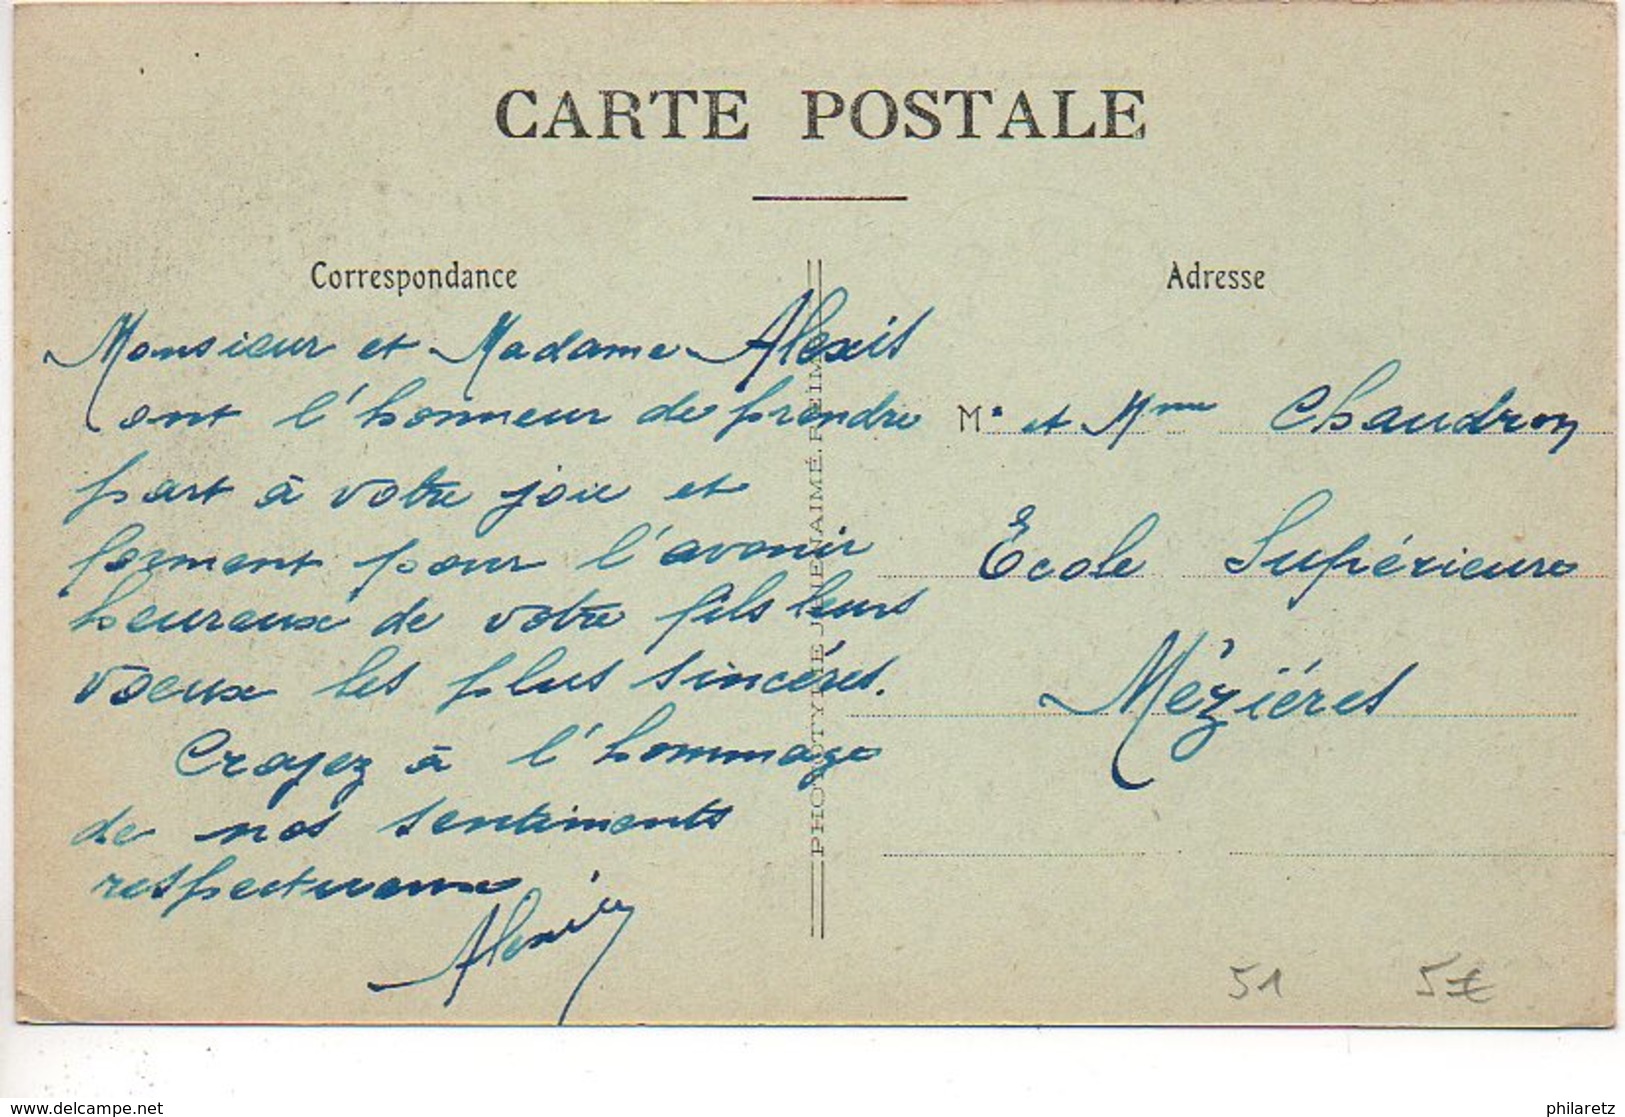 CARTE POSTALE
Correspondance
Monsieur et Madame Alexis
ont l'honneur de prendre
part à votre joie et
forment pour l'avenir
heureux de votre fils leurs
voeux les plus sincéres.
Croyez à l'hommage
de nos sentiments
respectueux
Alexis
PHOTOTYPIE J. BIENAIMÉ. REIMS
Adresse
M. et Mme Chaudron
Ecole Supérieure
Méziéres
51 5€
www.delcampe.net
philaretz